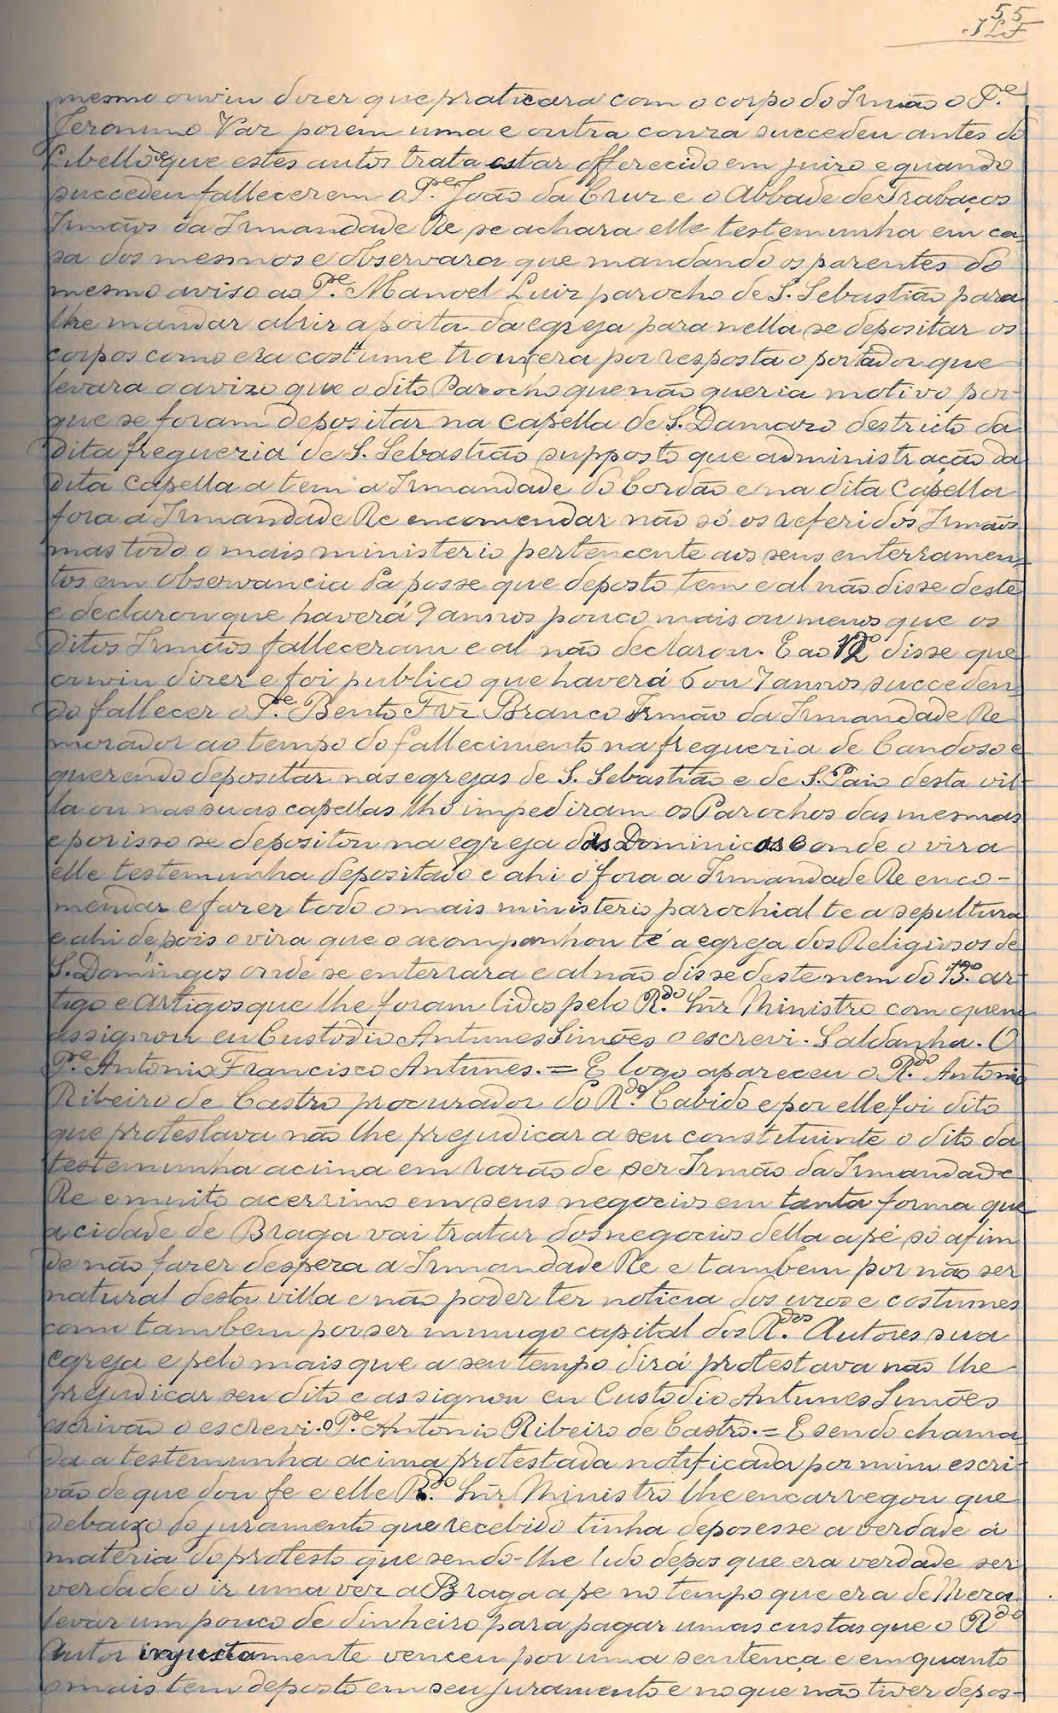 55
mesmo ouviu dizer que praticara com o corpo do Irmão o P.e
Jeronimo Vaz porem uma e outra couza succedeu antes do
Libello de que estes autos trata estar offerecido em juizo e quando
succedeu fallecerem o P.e João da Cruz e o Abbade de Travaços
Irmãos da Irmandade Re se achara elle testemunha em ca-
sa dos mesmos e observara que mandando os parentes do
mesmo aviso ao P.e Manoel Luiz parocho de S. Sebastião para
lhe mandar abrir a porta da egreja para nella se depositar os
corpos como era costume trouxera por resposta o portador que
levara o avizo que o dito Parocho que não queria motivo por-
que se foram depositar na capella de S. Damazo destricto da
dita freguezia de S. Sebastião supposto que administração da
dita capella a tem a Irmandade do Cordão e na dita Capella
fora a Irmandade Re encomendar não só os referidos Irmãos
mas todo o mais ministerio pertencente aos seus enterramen-
tos em observancia da posse que deposto tem e al não disse deste
e declarou que haverá 9 annos pouco mais ou menos que os
ditos Irmãos falleceram e al não declarou. E ao 12º disse que
ouviu dizer e foi publico que haverá 6 ou 7 annos succeden-
do fallecer o P.e Bento Frz Branco Irmão da Irmandade Re
morador ao tempo do fallecimento na freguezia de Candoso e
querendo depositar nas egrejas de S. Sebastião e de S. Paio desta vil-
la ou nas suas capellas lho impediram os Parochos das mesmas
e por isso se depositou na egreja das Dominicas e onde o vira
elle testemunha depositado e ahi o fora a Irmandade Re enco-
mendar e fazer todo o mais ministerio parochial te a sepultura
e ahi depois o vira que o acompanhou té a egreja dos Religiosos de
S. Domingos onde se enterrara e al não disse deste nem do 13.º ar-
tigo e artigos que lhe foram lidos pelo R.do Snr Ministro com quem
assignou eu Custodio Antunes Simões o escrevi. Saldanha. O
P.e Antonio Francisco Antunes. = E logo apareceu o R.do Antonio
Ribeiro de Castro procurador do R.do Cabido e por elle foi dito
que protestava não lhe prejudicar a seu constituinte o dito da
testemunha acima em razão de ser Irmão da Irmandade
Re e muito acerrimo em seus negocios em tanta forma que
a cidade de Braga vai tratar dos negocios della a pé só afim
de não fazer despeza a Irmandade Re e tambem por não ser
natural desta villa e não poder ter noticia dos uzos e costumes
como tambem por ser inimigo capital dos R.dos Autores sua
egreja e pelo mais que a seu tempo dirá protestava não lhe
prejudicar seu dito e assignou eu Custodio Antunes Simões
escrivão o escrevi. o P.e Antonio Ribeiro de Castro. = E sendo chama-
da a testemunha acima protestada notificada por mim escri-
vão de que dou fe e elle R.do Snr Ministro lhe encarregou que
debaixo do juramento que recebido tinha depozesse a verdade á
materia do protesto que sendo-lhe lido depos que era verdade ser
verdade o ir uma vez a Braga a pe no tempo que era de Meza
levar um pouco de dinheiro para pagar umas custas que o R.do
Autor injustamente venceu por uma sentença e em quanto
o mais tem deposto em seu juramento e no que não tiver depos-